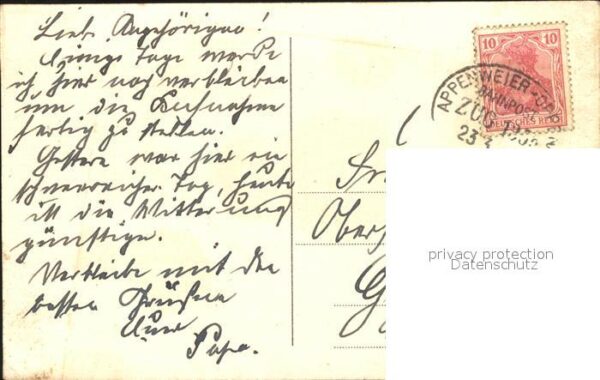 Liebe Angehörigen!
Einige Tage werde
ich hier noch verbleiben
um die Aufnahme
fertig zu stellen.
Gestern war hier ein
Tag, heute
ist die Witterung
günstiger.
Verbleibe mit den
besten Grüßen
Euer
Papa.
10 10
DEUTSCHES REICH
APPENWEIER
BAHNPOST
ZUG
privacy protection
Datenschutz